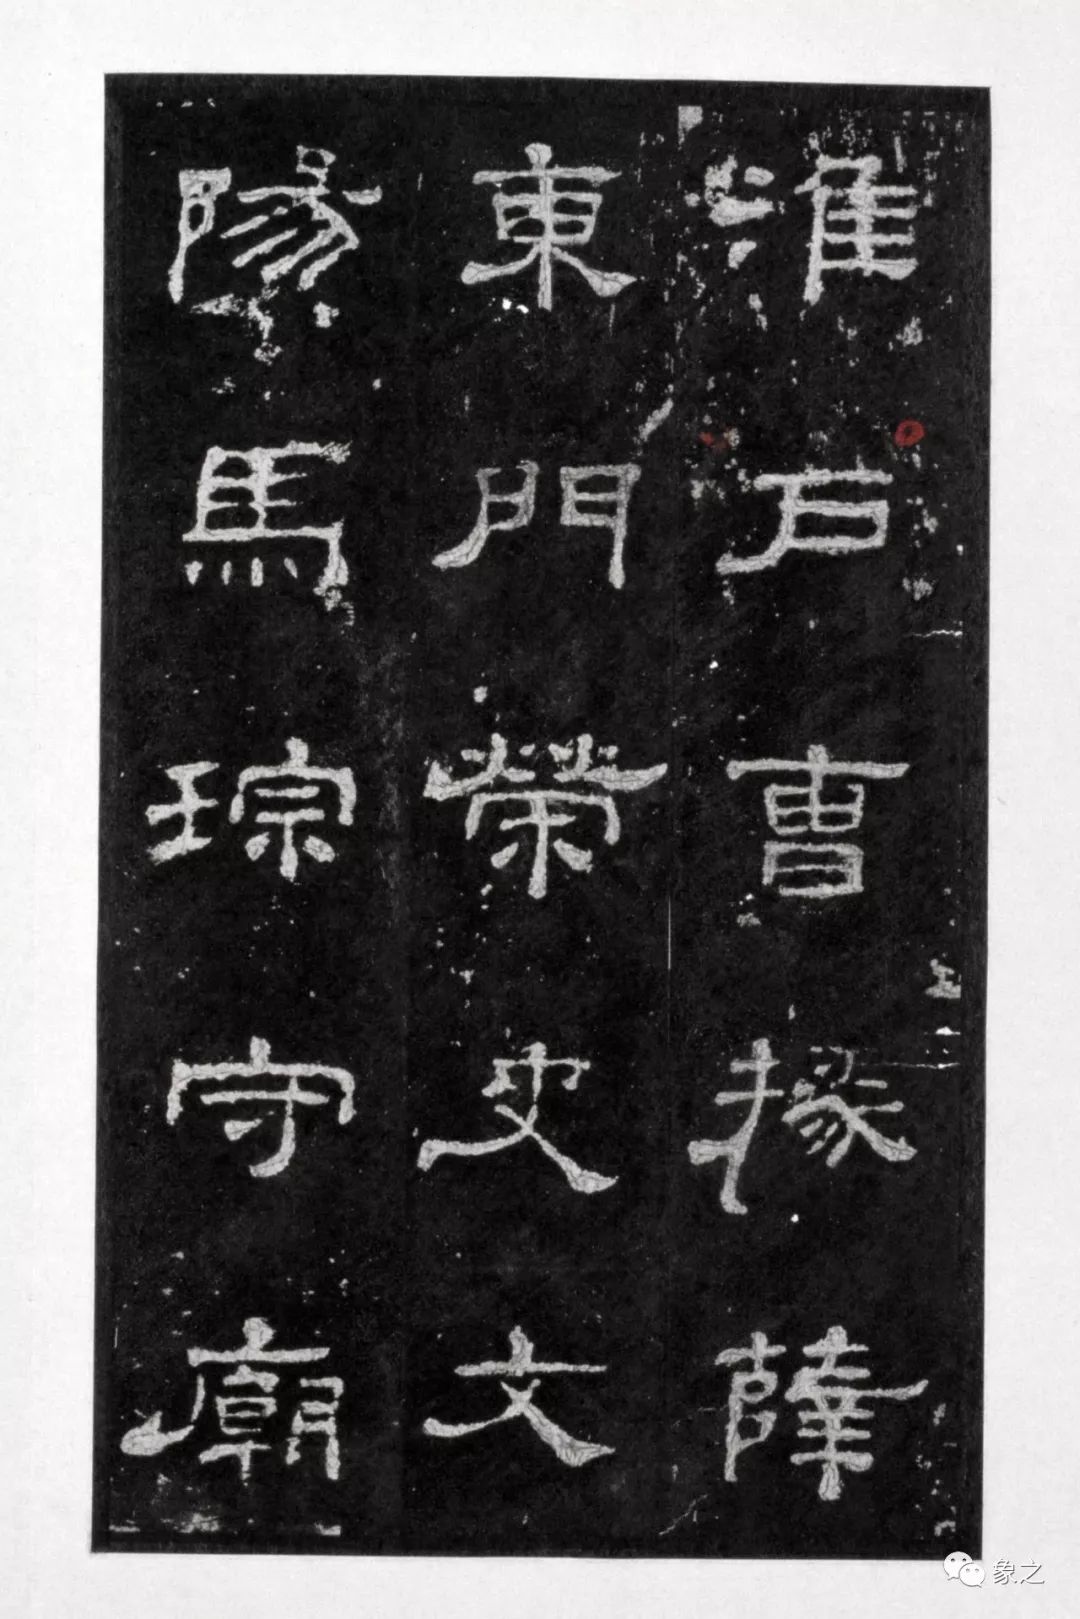 淮戶曹掾薛
東門榮史文
陽馬琮守廟
象之